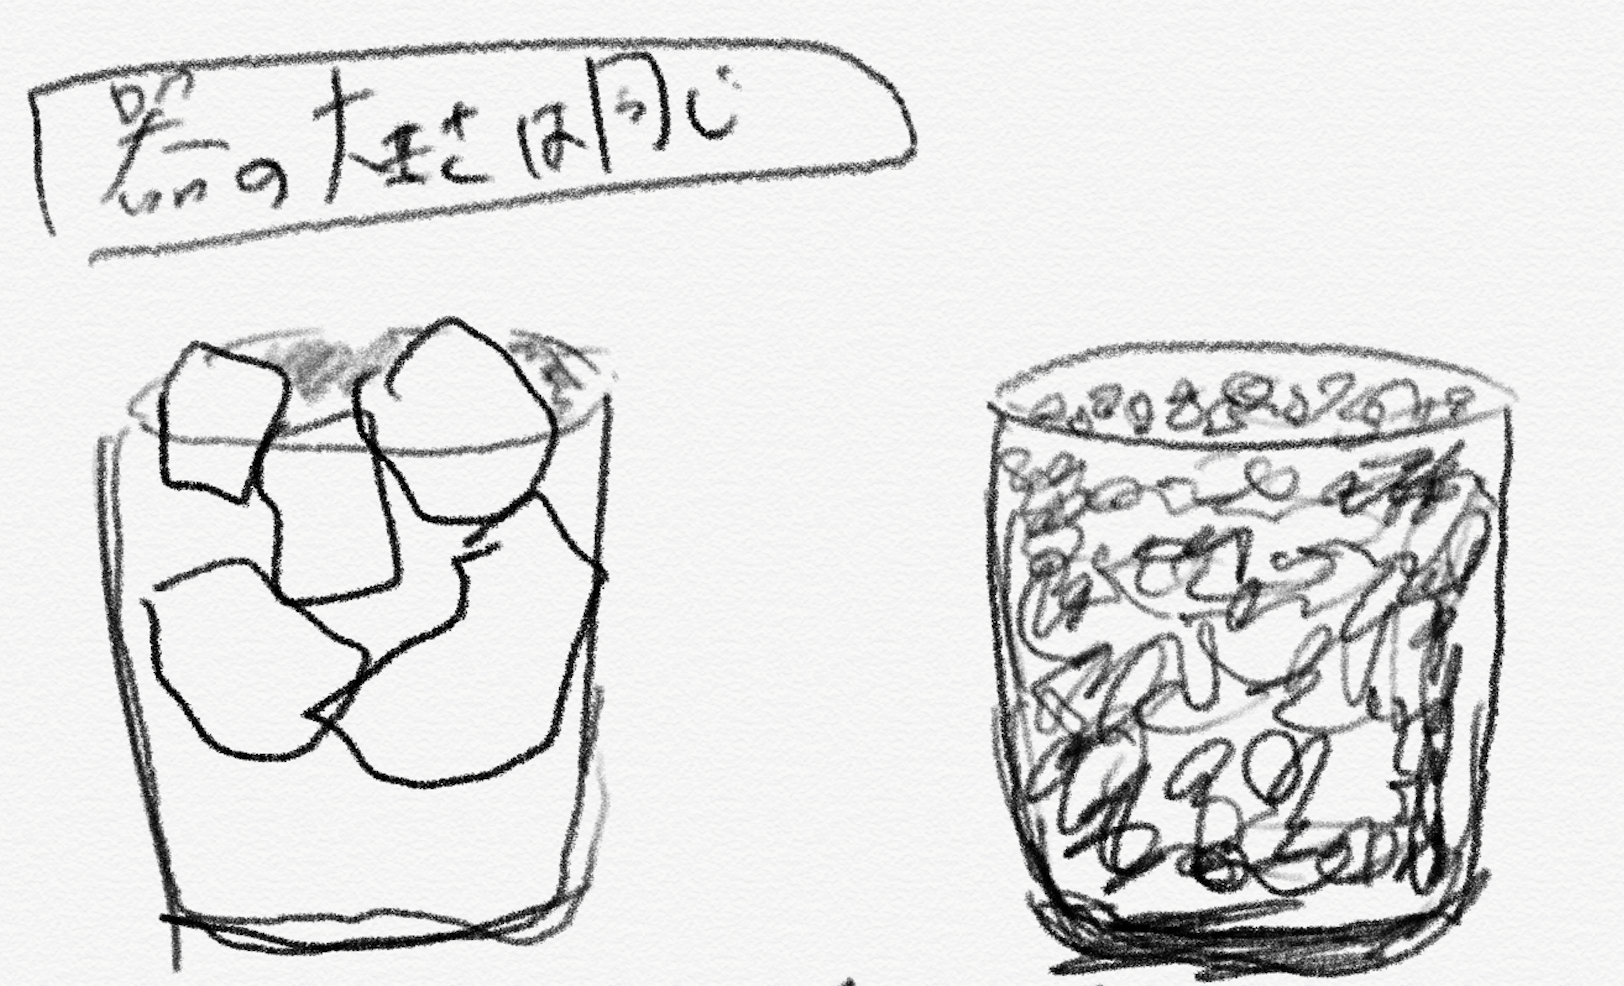 器の大きさは同じ